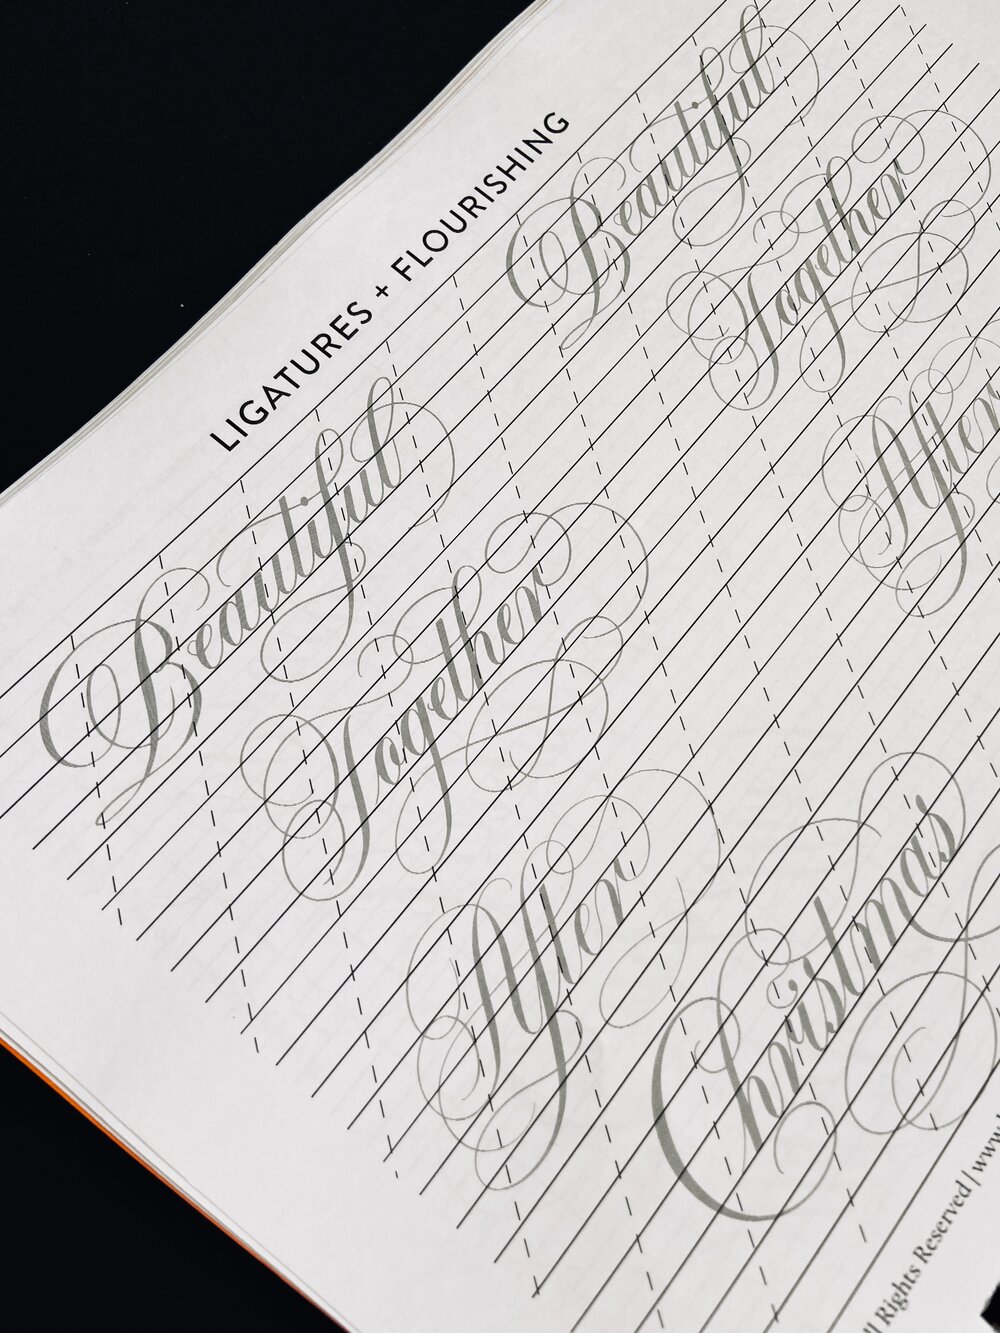 LIGATURES + FLOURISHING
Beautiful Beautiful
Together Together
After After
Christmas
Rights Reserved | www.